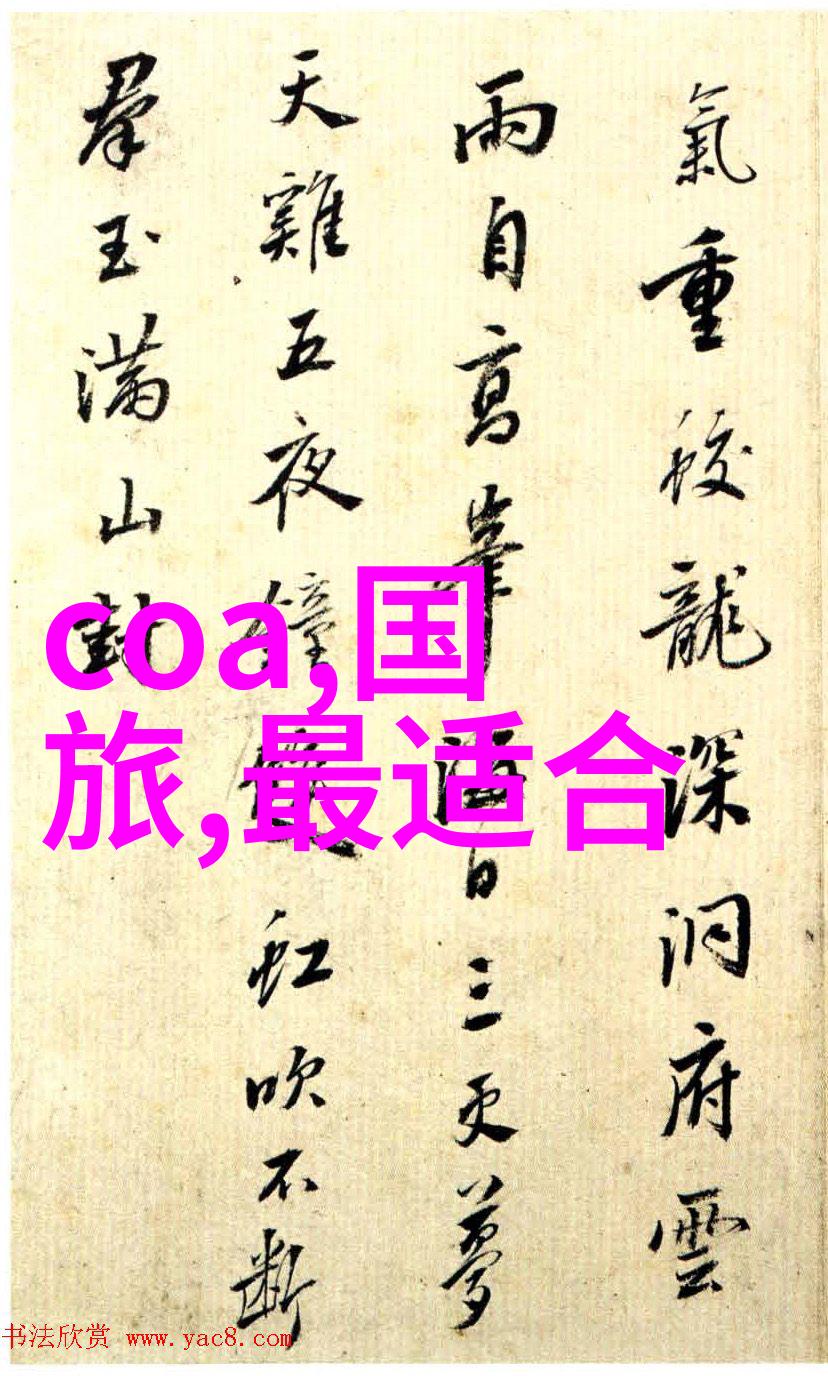 氣重蛟龍深洞府雲
雨自高峯海日三更夢
天雞五夜鐘虹吹不斷
羣玉滿山封
coa,国
旅,最适合
书法欣赏 www.yac8.com